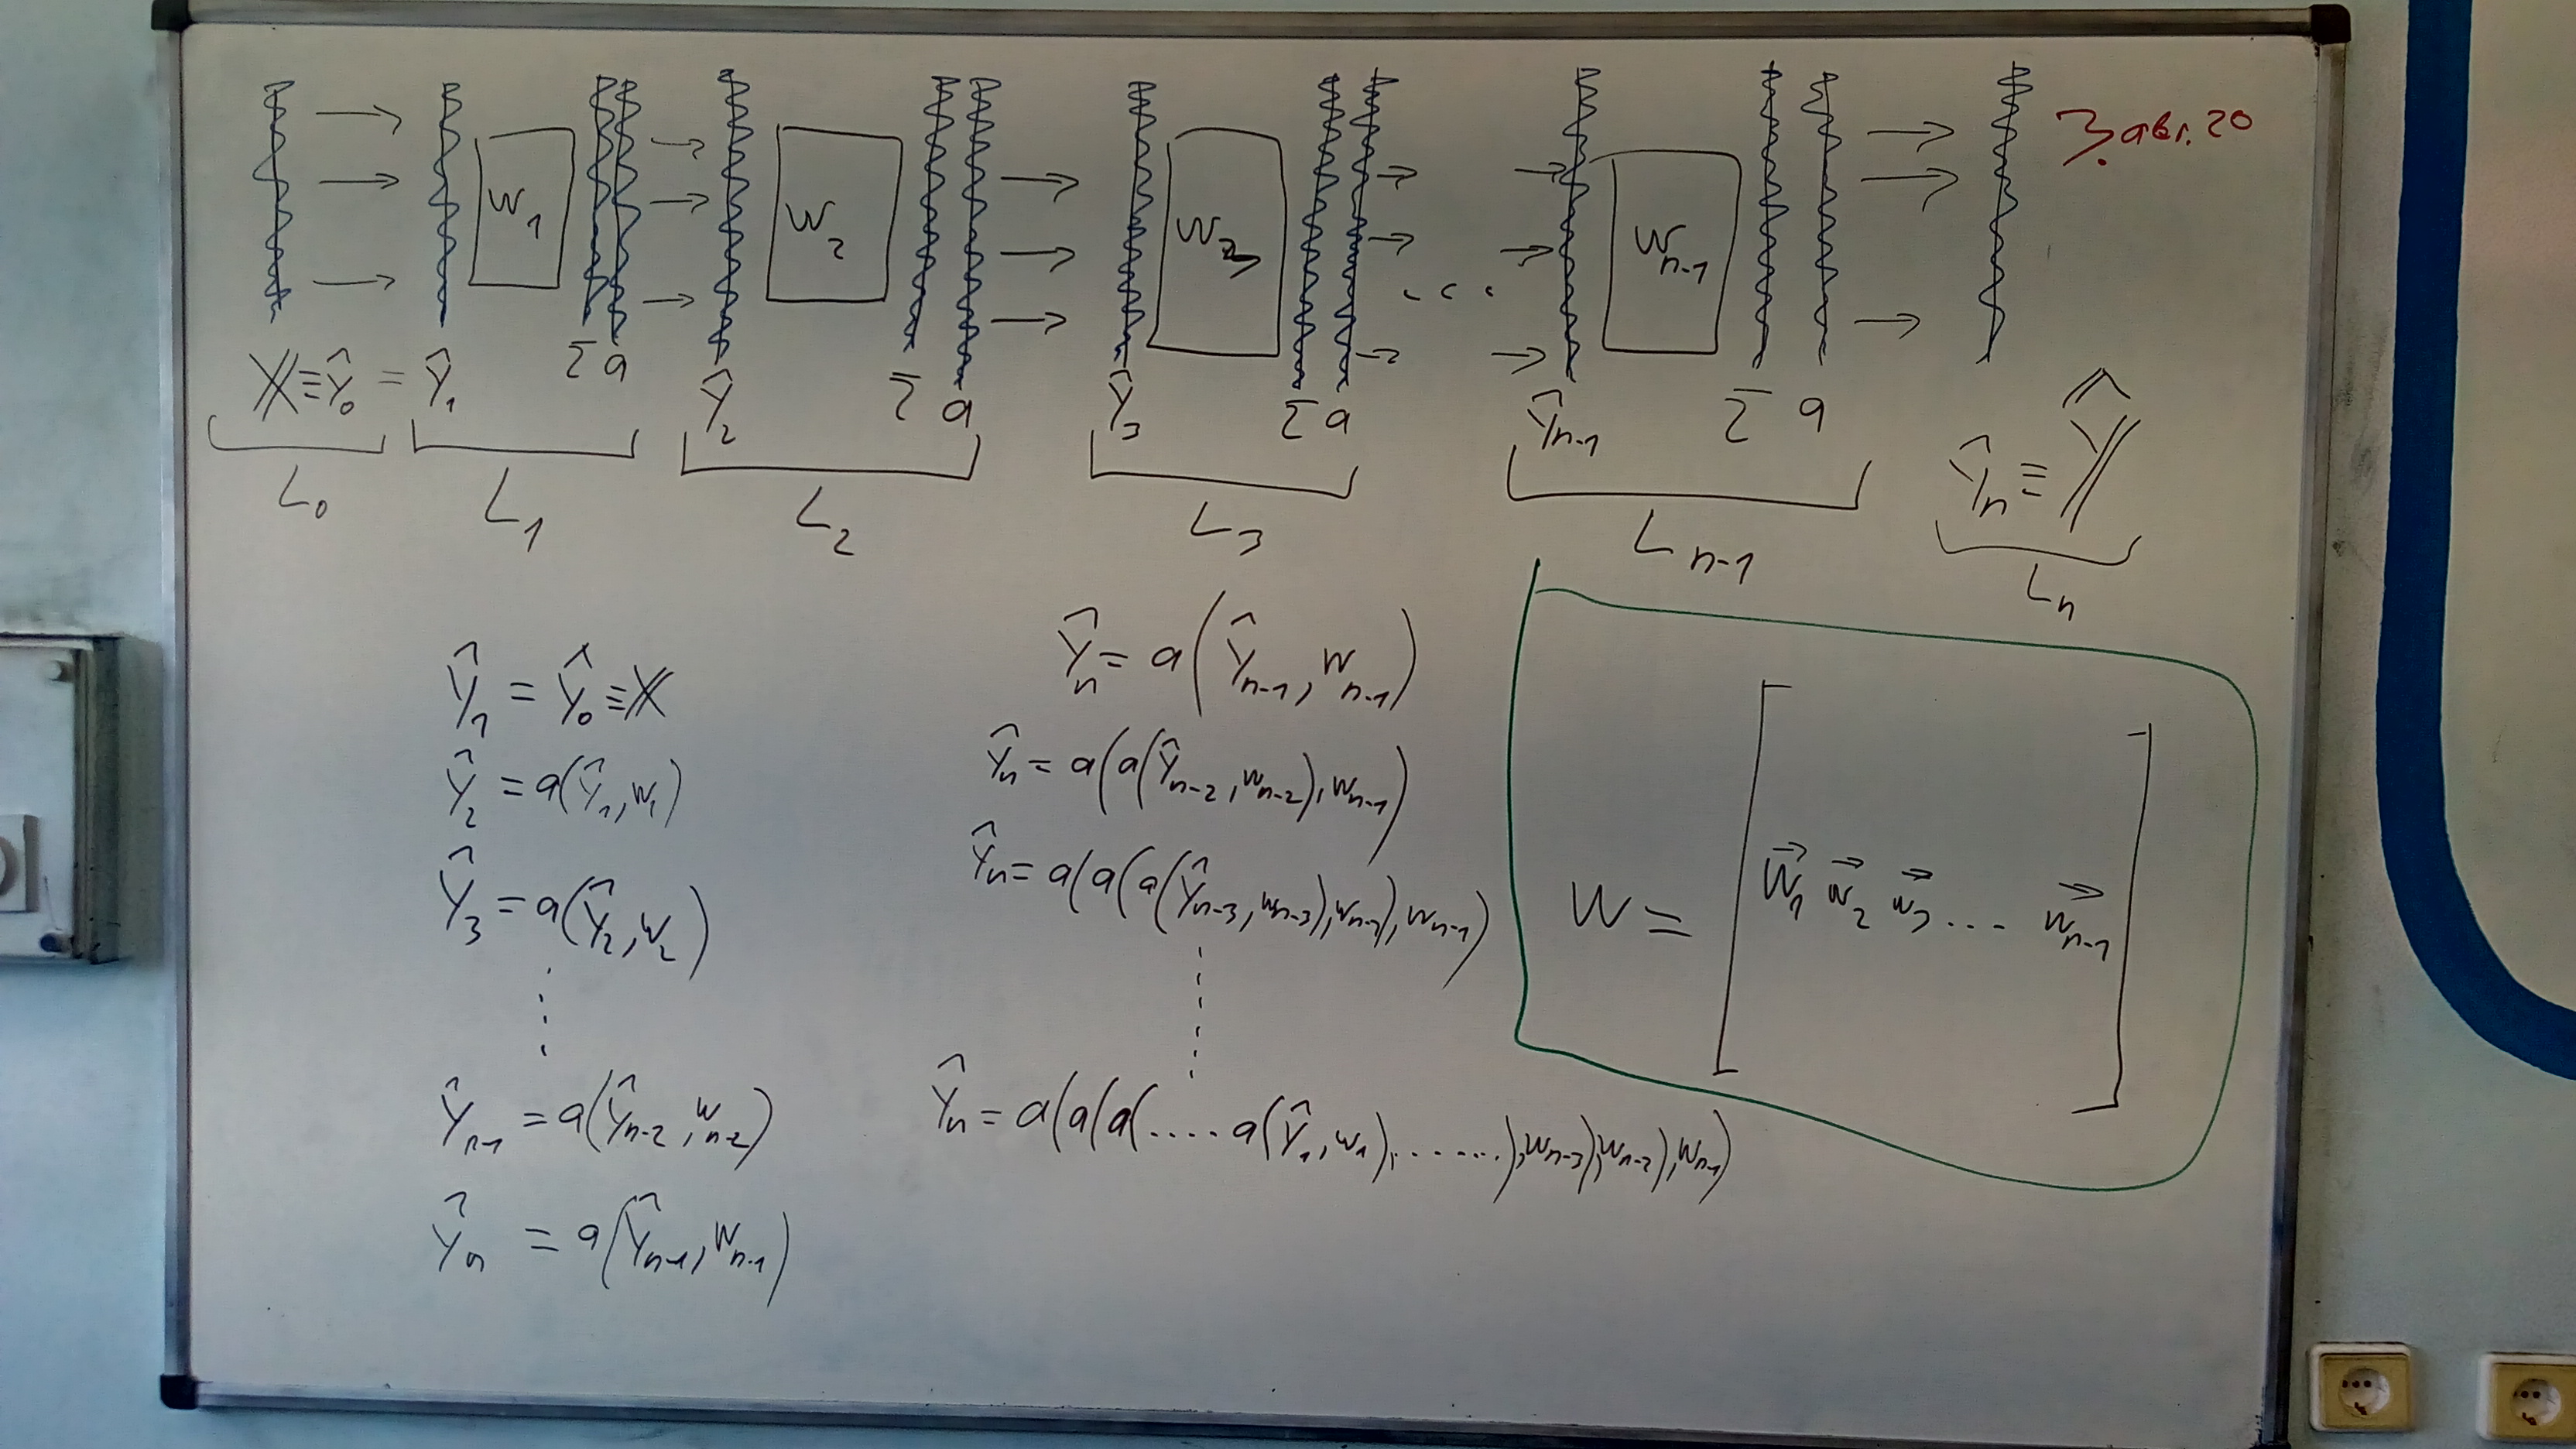 3. авг. 20
W₁ W₂ W₃ Wₙ₋₁
𝕏 ≡ Ŷ₀ = Ŷ₁ Σ a Ŷ₂ Σ a Ŷ₃ Σ a ... Ŷₙ₋₁ Σ a Ŷₙ ≡ 𝕐̂
L₀ L₁ L₂ L₃ Lₙ₋₁ Lₙ
Ŷ₁ = Ŷ₀ ≡ 𝕏
Ŷ₂ = a(Ŷ₁, W₁)
Ŷ₃ = a(Ŷ₂, W₂)
⋮
Ŷₙ₋₁ = a(Ŷₙ₋₂, Wₙ₋₂)
Ŷₙ = a(Ŷₙ₋₁, Wₙ₋₁)
Ŷₙ = a(Ŷₙ₋₁, Wₙ₋₁)
Ŷₙ = a(a(Ŷₙ₋₂, Wₙ₋₂), Wₙ₋₁)
Ŷₙ = a(a(a(Ŷₙ₋₃, Wₙ₋₃), Wₙ₋₂), Wₙ₋₁)
⋮
Ŷₙ = a(a(a(..... a(Ŷ₁, W₁), .......), Wₙ₋₃), Wₙ₋₂), Wₙ₋₁)
W = [W⃗₁ W⃗₂ W⃗₃ ... W⃗ₙ₋₁]